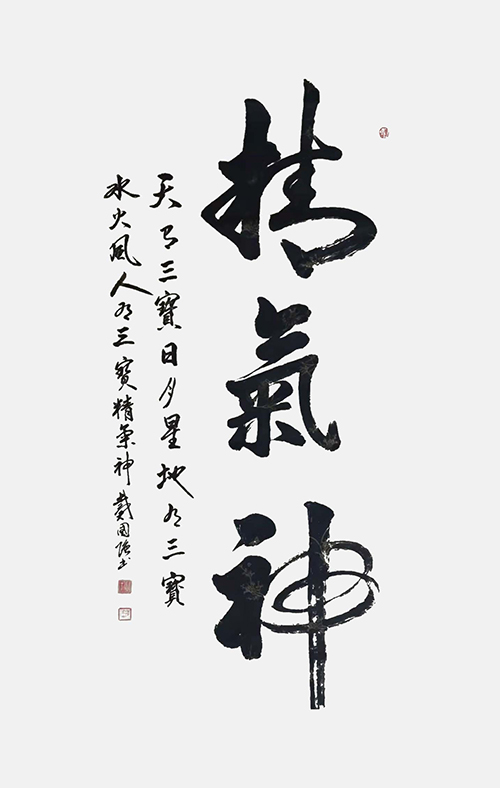 精氣神
天有三寶日月星地有三寶
水火風人有三寶精氣神戴國